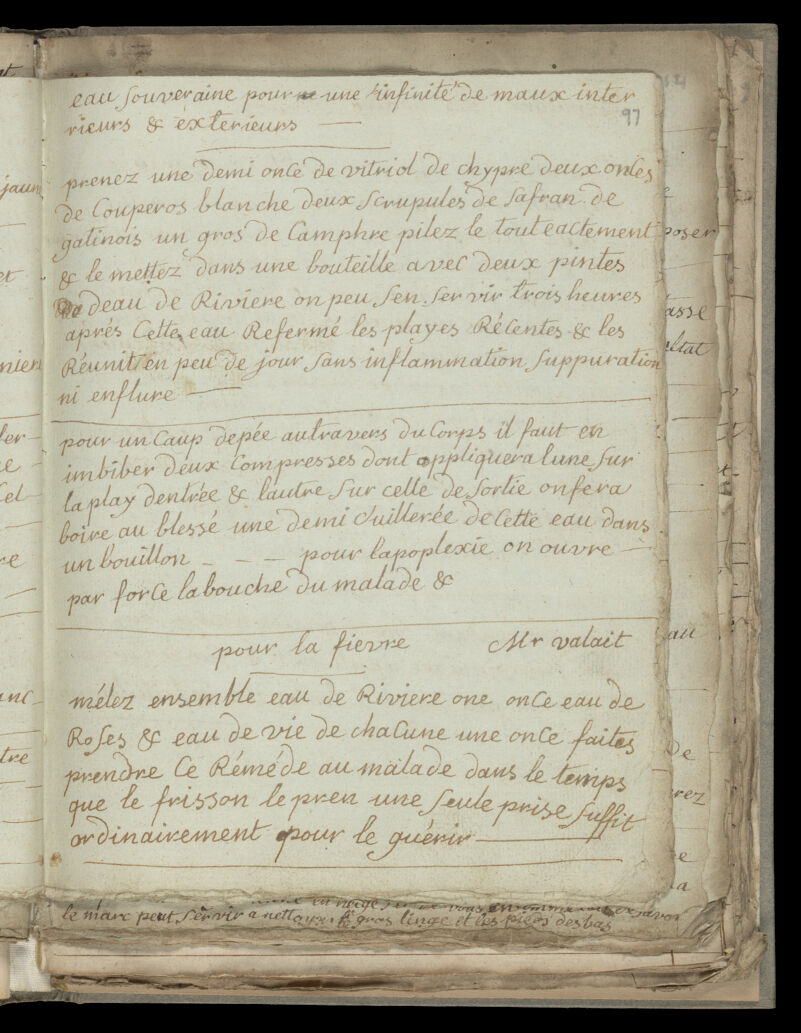 eau souveraine pour une infinité de maux inter
rieurs & exterieurs
97
prenez une demi once de vitriol de chypre deux onces
de Couperos blanche deux scrupules de safran de
gatinois un gros de Camphre pilez le tout eactement
& le mettez dans une bouteille avec deux pintes
deau de Riviere on peu sen servir trois heures
aprés Cette eau Refermé les playes Récentes & les
Réunit en peu de jour sans inflammation suppuration
ni enflure
pour un Caup depée autravers du Corps il faut en
imbiber deux Compresses dont appliquera lune sur
la play dentrée & lautre sur celle de sortie onfera
boire au blessé une demi Cuillerée de Cette eau dans
un bouillon - - - pour lapoplexie on ouvre
par force la bouche du malade &
pour la fievre Mr valait
mélez ensemble eau de Riviere one once eau de
Roses & eau de vie de chaCune une once faites
prendre Ce Réméde au malade dans le temps
que le frisson le pren une seule prise suffit
ordinairement pour le guérir
le marc peut servir a nettoyer le gros linge et les pieds des bas